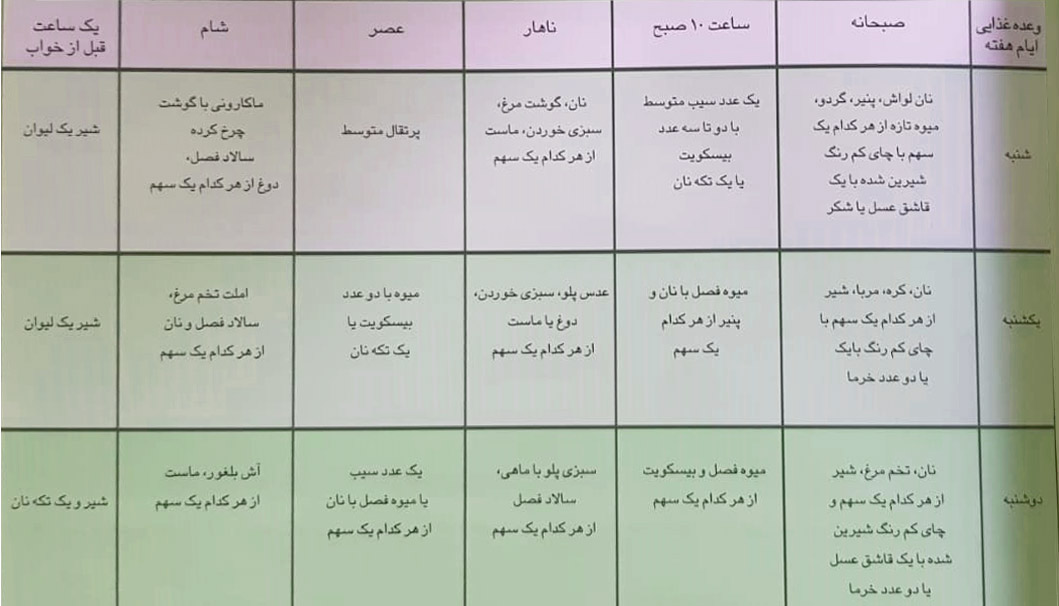 وعده غذایی
ایام هفته
صبحانه
ساعت ۱۰ صبح
ناهار
عصر
شام
یک ساعت
قبل از خواب
شنبه
نان لواش، پنیر، گردو،
میوه تازه از هر کدام یک
سهم با چای کم رنگ
شیرین شده با یک
قاشق عسل یا شکر
یک عدد سیب متوسط
با دو تا سه عدد
بیسکویت
یا یک تکه نان
نان، گوشت مرغ،
سبزی خوردن، ماست
از هر کدام یک سهم
پرتقال متوسط
ماکارونی با گوشت
چرخ کرده
سالاد فصل،
دوغ از هر کدام یک سهم
شیر یک لیوان
یکشنبه
نان، کره، مربا، شیر
از هر کدام یک سهم با
چای کم رنگ بایک
یا دو عدد خرما
میوه فصل با نان و
پنیر از هر کدام
یک سهم
عدس پلو، سبزی خوردن،
دوغ یا ماست
از هر کدام یک سهم
میوه با دو عدد
بیسکویت یا
یک تکه نان
املت تخم مرغ،
سالاد فصل و نان
از هر کدام یک سهم
شیر یک لیوان
دوشنبه
نان، تخم مرغ، شیر
از هر کدام یک سهم و
چای کم رنگ شیرین
شده با یک قاشق عسل
یا دو عدد خرما
میوه فصل و بیسکویت
از هر کدام یک سهم
سبزی پلو با ماهی،
سالاد فصل
از هر کدام یک سهم
یک عدد سیب
یا میوه فصل با نان
از هر کدام یک سهم
آش بلغور، ماست
از هر کدام یک سهم
شیر و یک تکه نان